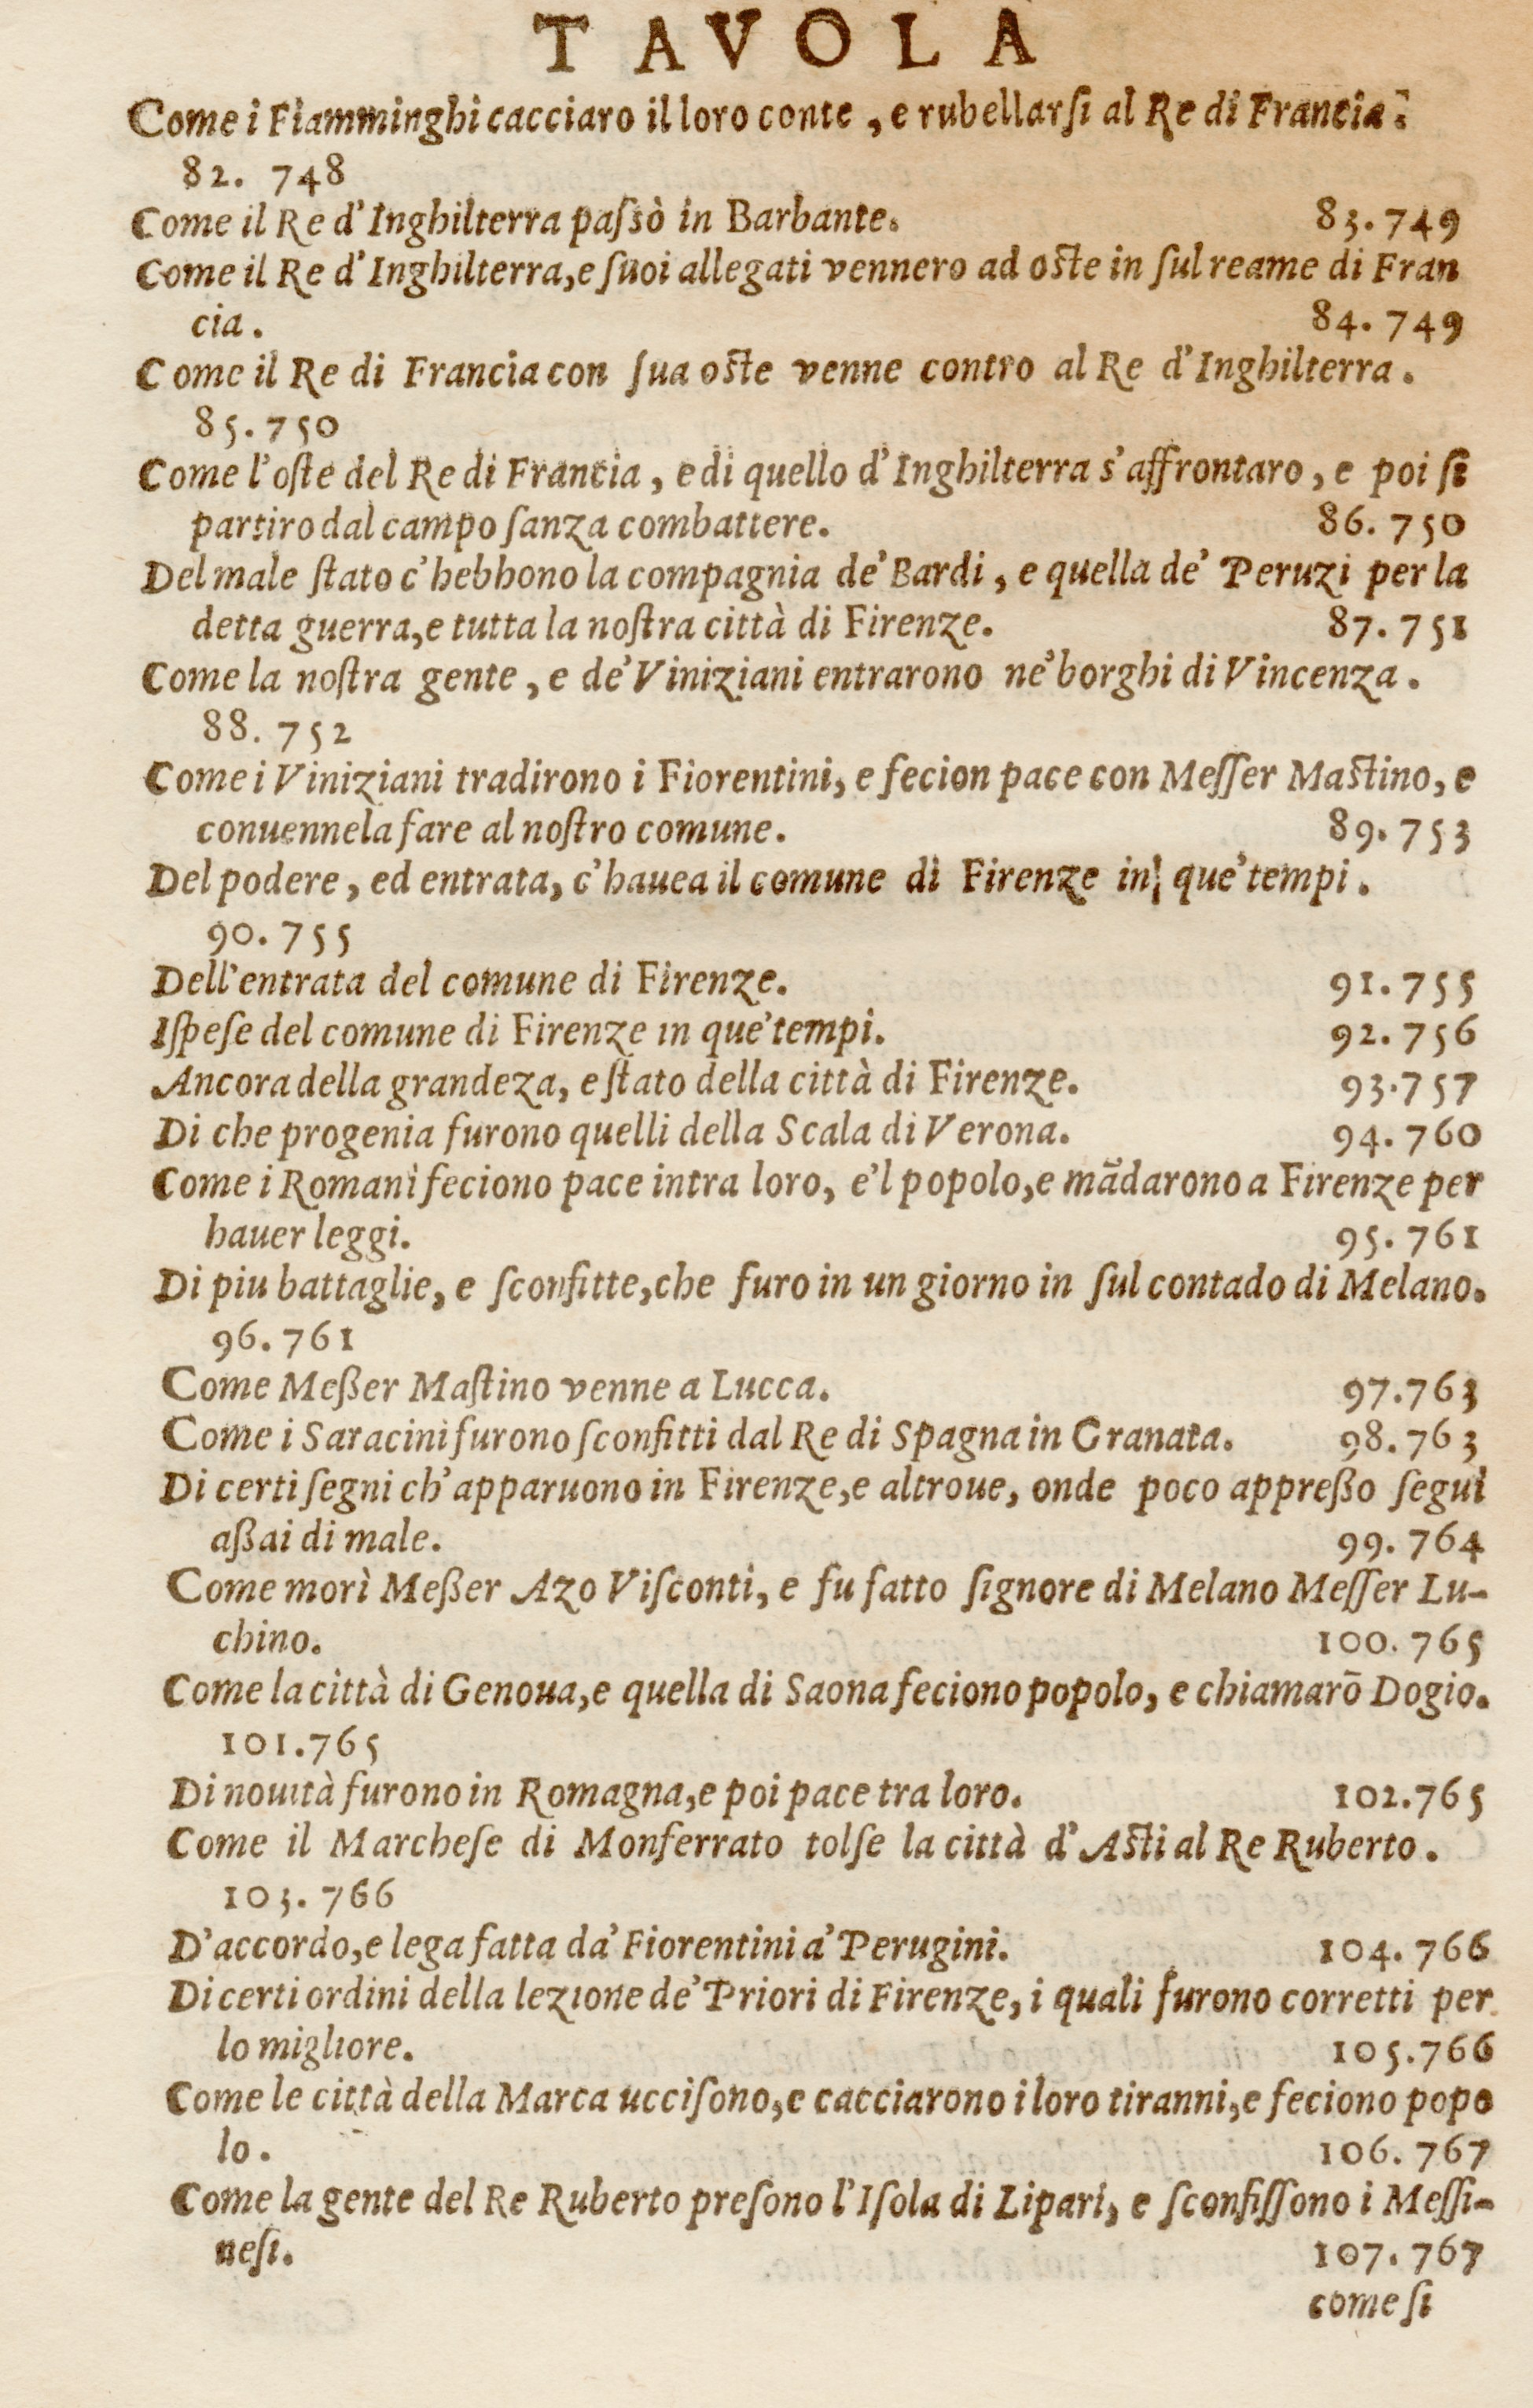 TAVOLA
Come i Fiamminghi cacciaro il loro conte, e rubellarſi al Re di Francia.
82. 748
Come il Re d'Inghilterra paſsò in Barbante. 83.749
Come il Re d'Inghilterra, e ſuoi allegati vennero ad oſte in ſul reame di Fran
cia. 84.749
Come il Re di Francia con ſua oſte venne contro al Re d'Inghilterra.
85.750
Come l'oſte del Re di Francia, e di quello d'Inghilterra s'affrontaro, e poi ſi
partiro dal campo ſanza combattere. 86.750
Del male ſtato c'hebbono la compagnia de' Bardi, e quella de' Peruzi per la
detta guerra, e tutta la noſtra città di Firenze. 87.751
Come la noſtra gente, e de' Viniziani entrarono ne' borghi di Vincenza.
88.752
Come i Viniziani tradirono i Fiorentini, e fecion pace con Meſſer Maſtino, e
conuennela fare al noſtro comune. 89.753
Del podere, ed entrata, c'hauea il comune di Firenze in que' tempi.
90.755
Dell'entrata del comune di Firenze. 91.755
Iſpeſe del comune di Firenze in que' tempi. 92.756
Ancora della grandeza, e ſtato della città di Firenze. 93.757
Di che progenia furono quelli della Scala di Verona. 94.760
Come i Romani feciono pace intra loro, e'l popolo, e mãdarono a Firenze per
hauer leggi. 95.761
Di piu battaglie, e ſconfitte, che furo in un giorno in ſul contado di Melano.
96.761
Come Meßer Maſtino venne a Lucca. 97.763
Come i Saracini furono ſconfitti dal Re di Spagna in Granata. 98.763
Di certi ſegni ch'apparuono in Firenze, e altroue, onde poco appreßo ſeguì
aßai di male. 99.764
Come morì Meßer Azo Viſconti, e fu fatto ſignore di Melano Meſſer Lu-
chino. 100.765
Come la città di Genoua, e quella di Saona feciono popolo, e chiamarõ Dogio.
101.765
Di nouità furono in Romagna, e poi pace tra loro. 102.765
Come il Marcheſe di Monferrato tolſe la città d'Aſti al Re Ruberto.
103.766
D'accordo, e lega fatta da' Fiorentini a' Perugini. 104.766
Di certi ordini della lezione de' Priori di Firenze, i quali furono corretti per
lo migliore. 105.766
Come le città della Marca ucciſono, e cacciarono i loro tiranni, e feciono popo
lo. 106.767
Come la gente del Re Ruberto preſono l'Iſola di Lipari, e ſconfiſſono i Meſſi-
neſi. 107.767
come ſi